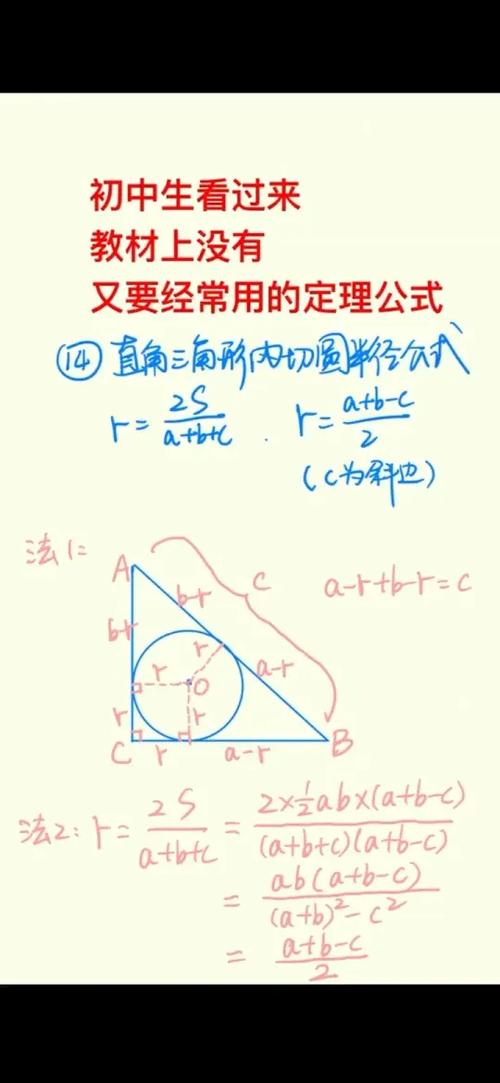 初中生看过来
教材上没有
又要经常用的定理公式
⑭ 直角三角形内切圆半径公式
r = 2S/(a+b+c) . r = (a+b-c)/2
(c为斜边)
法1:
A
c
a-r+b-r=c
b-r
b-r
r
a-r
r
O
r
r
C
r
a-r
B
法2: r = 2S/(a+b+c) = 2×½ab×(a+b-c)/(a+b+c)(a+b-c)
= ab(a+b-c)/(a+b)²-c²
= (a+b-c)/2